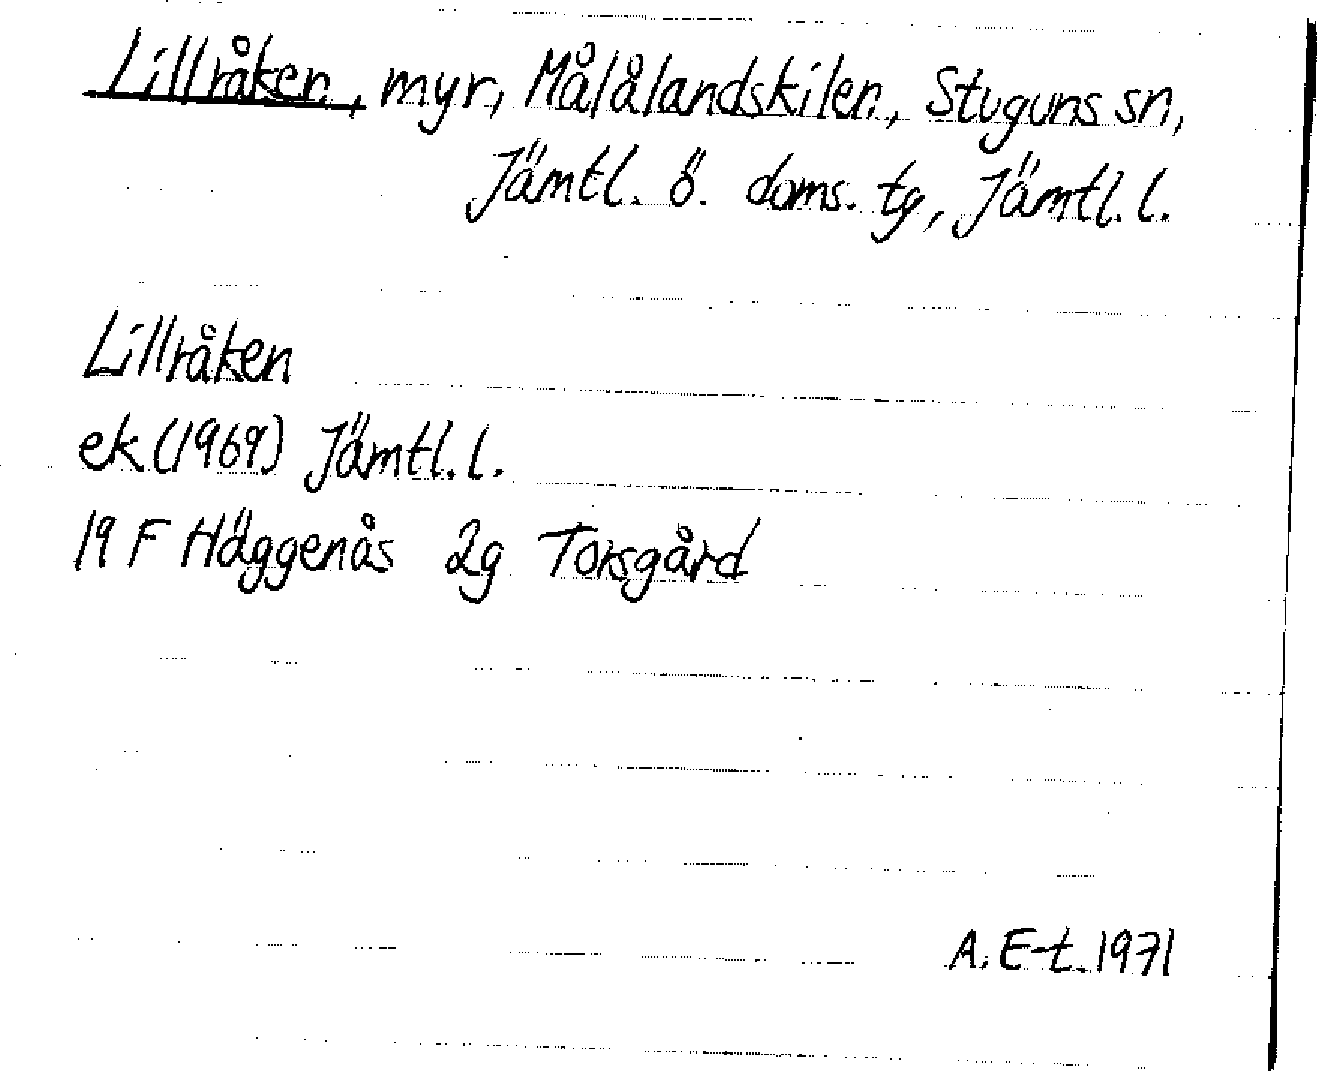 Lillråken, myr, Målålandskilen, Stuguns sn,
Jämtl. ö. doms. tg, Jämtl. l.
Lillråken
ek (1969) Jämtl. l.
19 F Häggenås 2g Torsgård
A. E-t. 1971